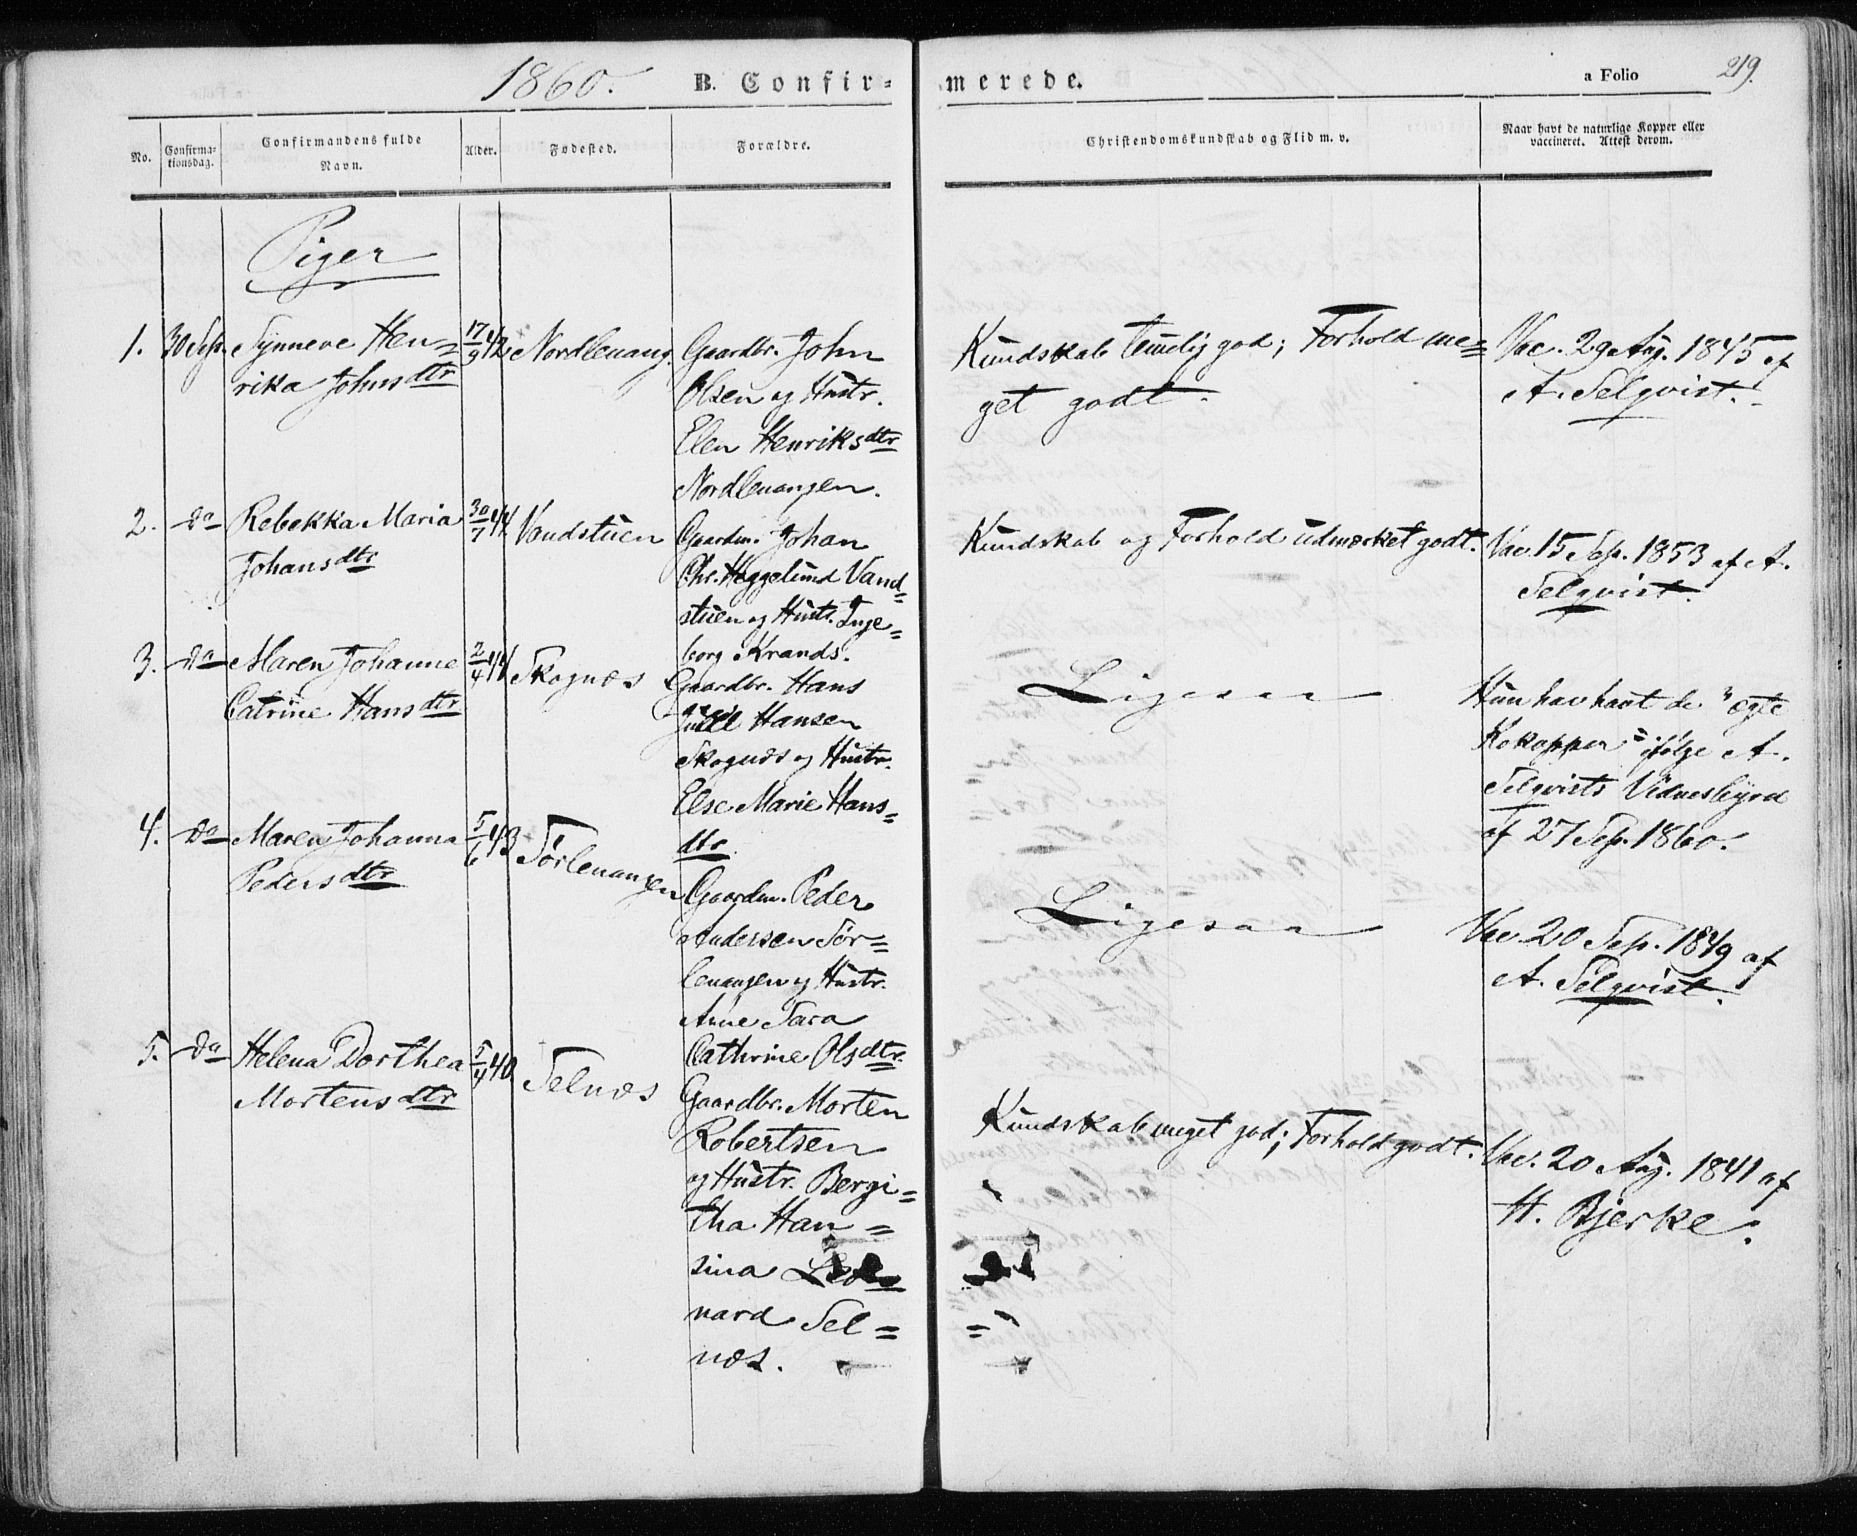 1860. B. Confir= merede. a Folio 219.
No. Confirma=tionsdag. Confirmandens fulde Navn. Alder. Fødested. Forældre. Christendomskundskab og Flid m. v. Naar havt de naturlige Kopper eller vaccineret. Attest derom.
Piger
1. 30 Sep. Synneve Hen=
rika Johnsdtr
17/9 42
Nordlenang.
Gaardbr. John
Olsen og Hustr.
Elen Henriksdtr
Nordlenangen.
Kundskab temelig god; Forhold me=
get godt.
Vac. 29 Aug. 1845 af
A. Selqvist.
2. Do Rebekka Maria
Johansdtr
30/7 44
Vandstuen
Gaardm. Johan
Chr. Heggelund Vand=
stuen og Hustr. Inge=
borg Krands.
Kundskab og Forhold udmærket godt.
Vac. 15 Sep. 1853 af A.
Selqvist.
3. Do Maren Johanne
Catrine Hansdtr
2/4 44
Skognæs
Gaardbr. Hans
Juell Hansen
Skognæs og Hustr.
Else Marie Hans=
dtr
Ligesaa
Hun har havt de "ægte
Kokopper" ifølge A.
Selqvists Vidnesbyrd
af 27 Sep. 1860.
4. Do Maren Johanna
Pedersdtr
5/6 43
Sørlenangen
Gaardm. Peder
Andersen Sør=
lenangen og Hustr.
Anne Sara
Cathrine Olsdtr.
Ligesaa
Vac 20 Sep. 1849 af
A. Selqvist.
5. Do Helena Dorthea
Mortensdtr
5/4 40
Selnæs
Gaardbr. Morten
Robertsen
og Hustr. Bergi=
tha Han=
sina Leo=
nard Sel=
næs.
Kundskab meget god; Forhold godt.
Vac. 20 Aug. 1841 af
H. Bjerke.